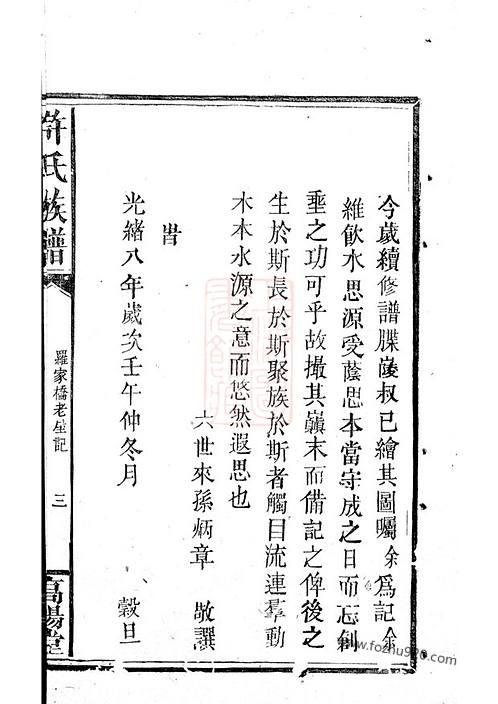 今歲續修譜牒薐叔已繪其圖囑余爲記余
維飲水思源受蔭思本當守成之日而忘創
埀之功可乎故撮其巔末而備記之俾後之
生於斯長於斯聚族於斯者觸目流連羣動
木本水源之意而悠然遐思也
六世來孫炳章 敬譔
旹
光緒八年歲次壬午仲冬月 穀旦
許氏族譜
羅家橋老坒記
三
高陽堂
www.fozhu920.com